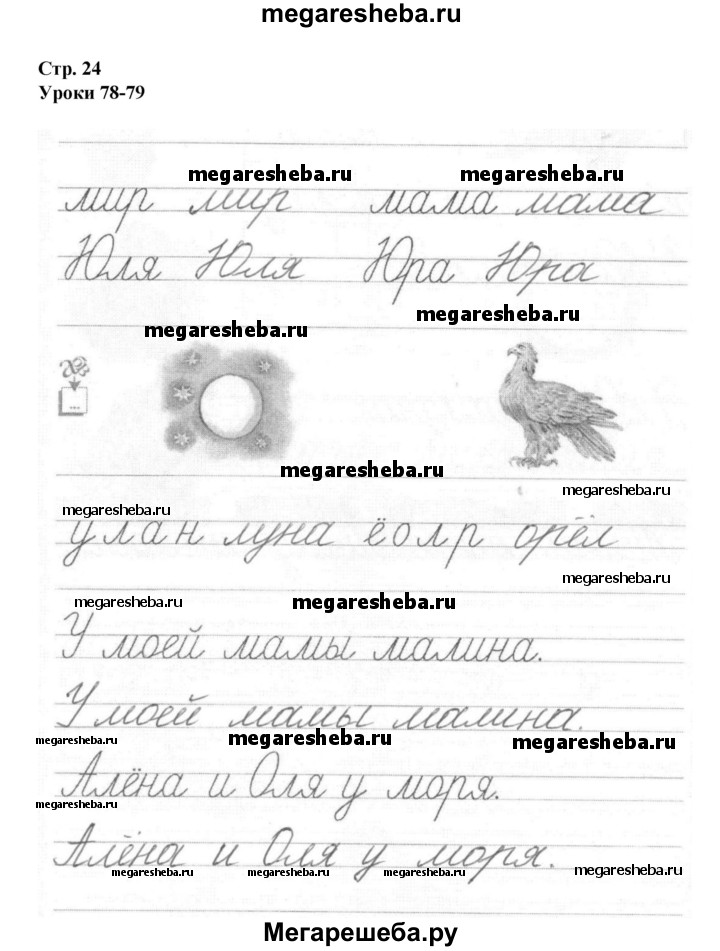 megaresheba.ru
Стр. 24
Уроки 78-79
megaresheba.ru megaresheba.ru
мир мир мама мама
Юля Юля Юра Юра
megaresheba.ru
megaresheba.ru
...
megaresheba.ru
megaresheba.ru
megaresheba.ru
у л а н луна ё о л р орёл
megaresheba.ru
megaresheba.ru megaresheba.ru
У моей мамы малина.
У моей мамы малина.
megaresheba.ru megaresheba.ru megaresheba.ru
Алёна и Оля у моря.
megaresheba.ru
Алёна и Оля у моря.
megaresheba.ru megaresheba.ru megaresheba.ru megaresheba.ru
Мегарешеба.ру